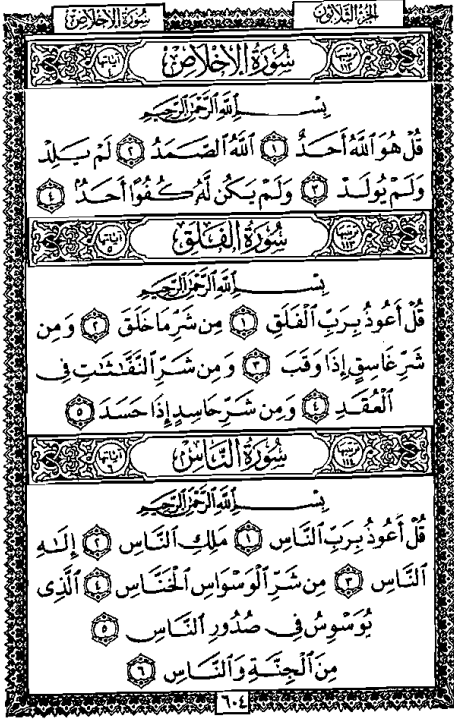 الجزء الثلاثون سورة الإخلاص
ترتيبها ١١٢ سورة الإخلاص آياتها ٤
بِسْمِ ٱللَّهِ ٱلرَّحْمَٰنِ ٱلرَّحِيمِ
قُلْ هُوَ ٱللَّهُ أَحَدٌ ١ ٱللَّهُ ٱلصَّمَدُ ٢ لَمْ يَلِدْ
وَلَمْ يُولَدْ ٣ وَلَمْ يَكُن لَّهُۥ كُفُوًا أَحَدٌۢ ٤
ترتيبها ١١٣ سورة الفلق آياتها ٥
بِسْمِ ٱللَّهِ ٱلرَّحْمَٰنِ ٱلرَّحِيمِ
قُلْ أَعُوذُ بِرَبِّ ٱلْفَلَقِ ١ مِن شَرِّ مَا خَلَقَ ٢ وَمِن
شَرِّ غَاسِقٍ إِذَا وَقَبَ ٣ وَمِن شَرِّ ٱلنَّفَّٰثَٰتِ فِى
ٱلْعُقَدِ ٤ وَمِن شَرِّ حَاسِدٍ إِذَا حَسَدَ ٥
ترتيبها ١١٤ سورة الناس آياتها ٦
بِسْمِ ٱللَّهِ ٱلرَّحْمَٰنِ ٱلرَّحِيمِ
قُلْ أَعُوذُ بِرَبِّ ٱلنَّاسِ ١ مَلِكِ ٱلنَّاسِ ٢ إِلَٰهِ
ٱلنَّاسِ ٣ مِن شَرِّ ٱلْوَسْوَاسِ ٱلْخَنَّاسِ ٤ ٱلَّذِى
يُوَسْوِسُ فِى صُدُورِ ٱلنَّاسِ ٥
مِنَ ٱلْجِنَّةِ وَٱلنَّاسِ ٦
٦٠٤